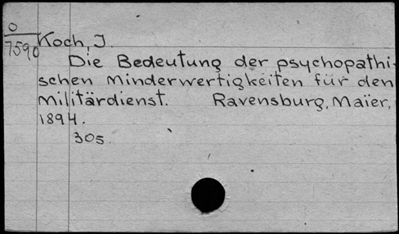 0
7590
Koch, J.
Die Bedeutung der psychopathi-
schen Minderwertigkeiten für den
Militärdienst. Ravensburg, Maier,
1894.
305.